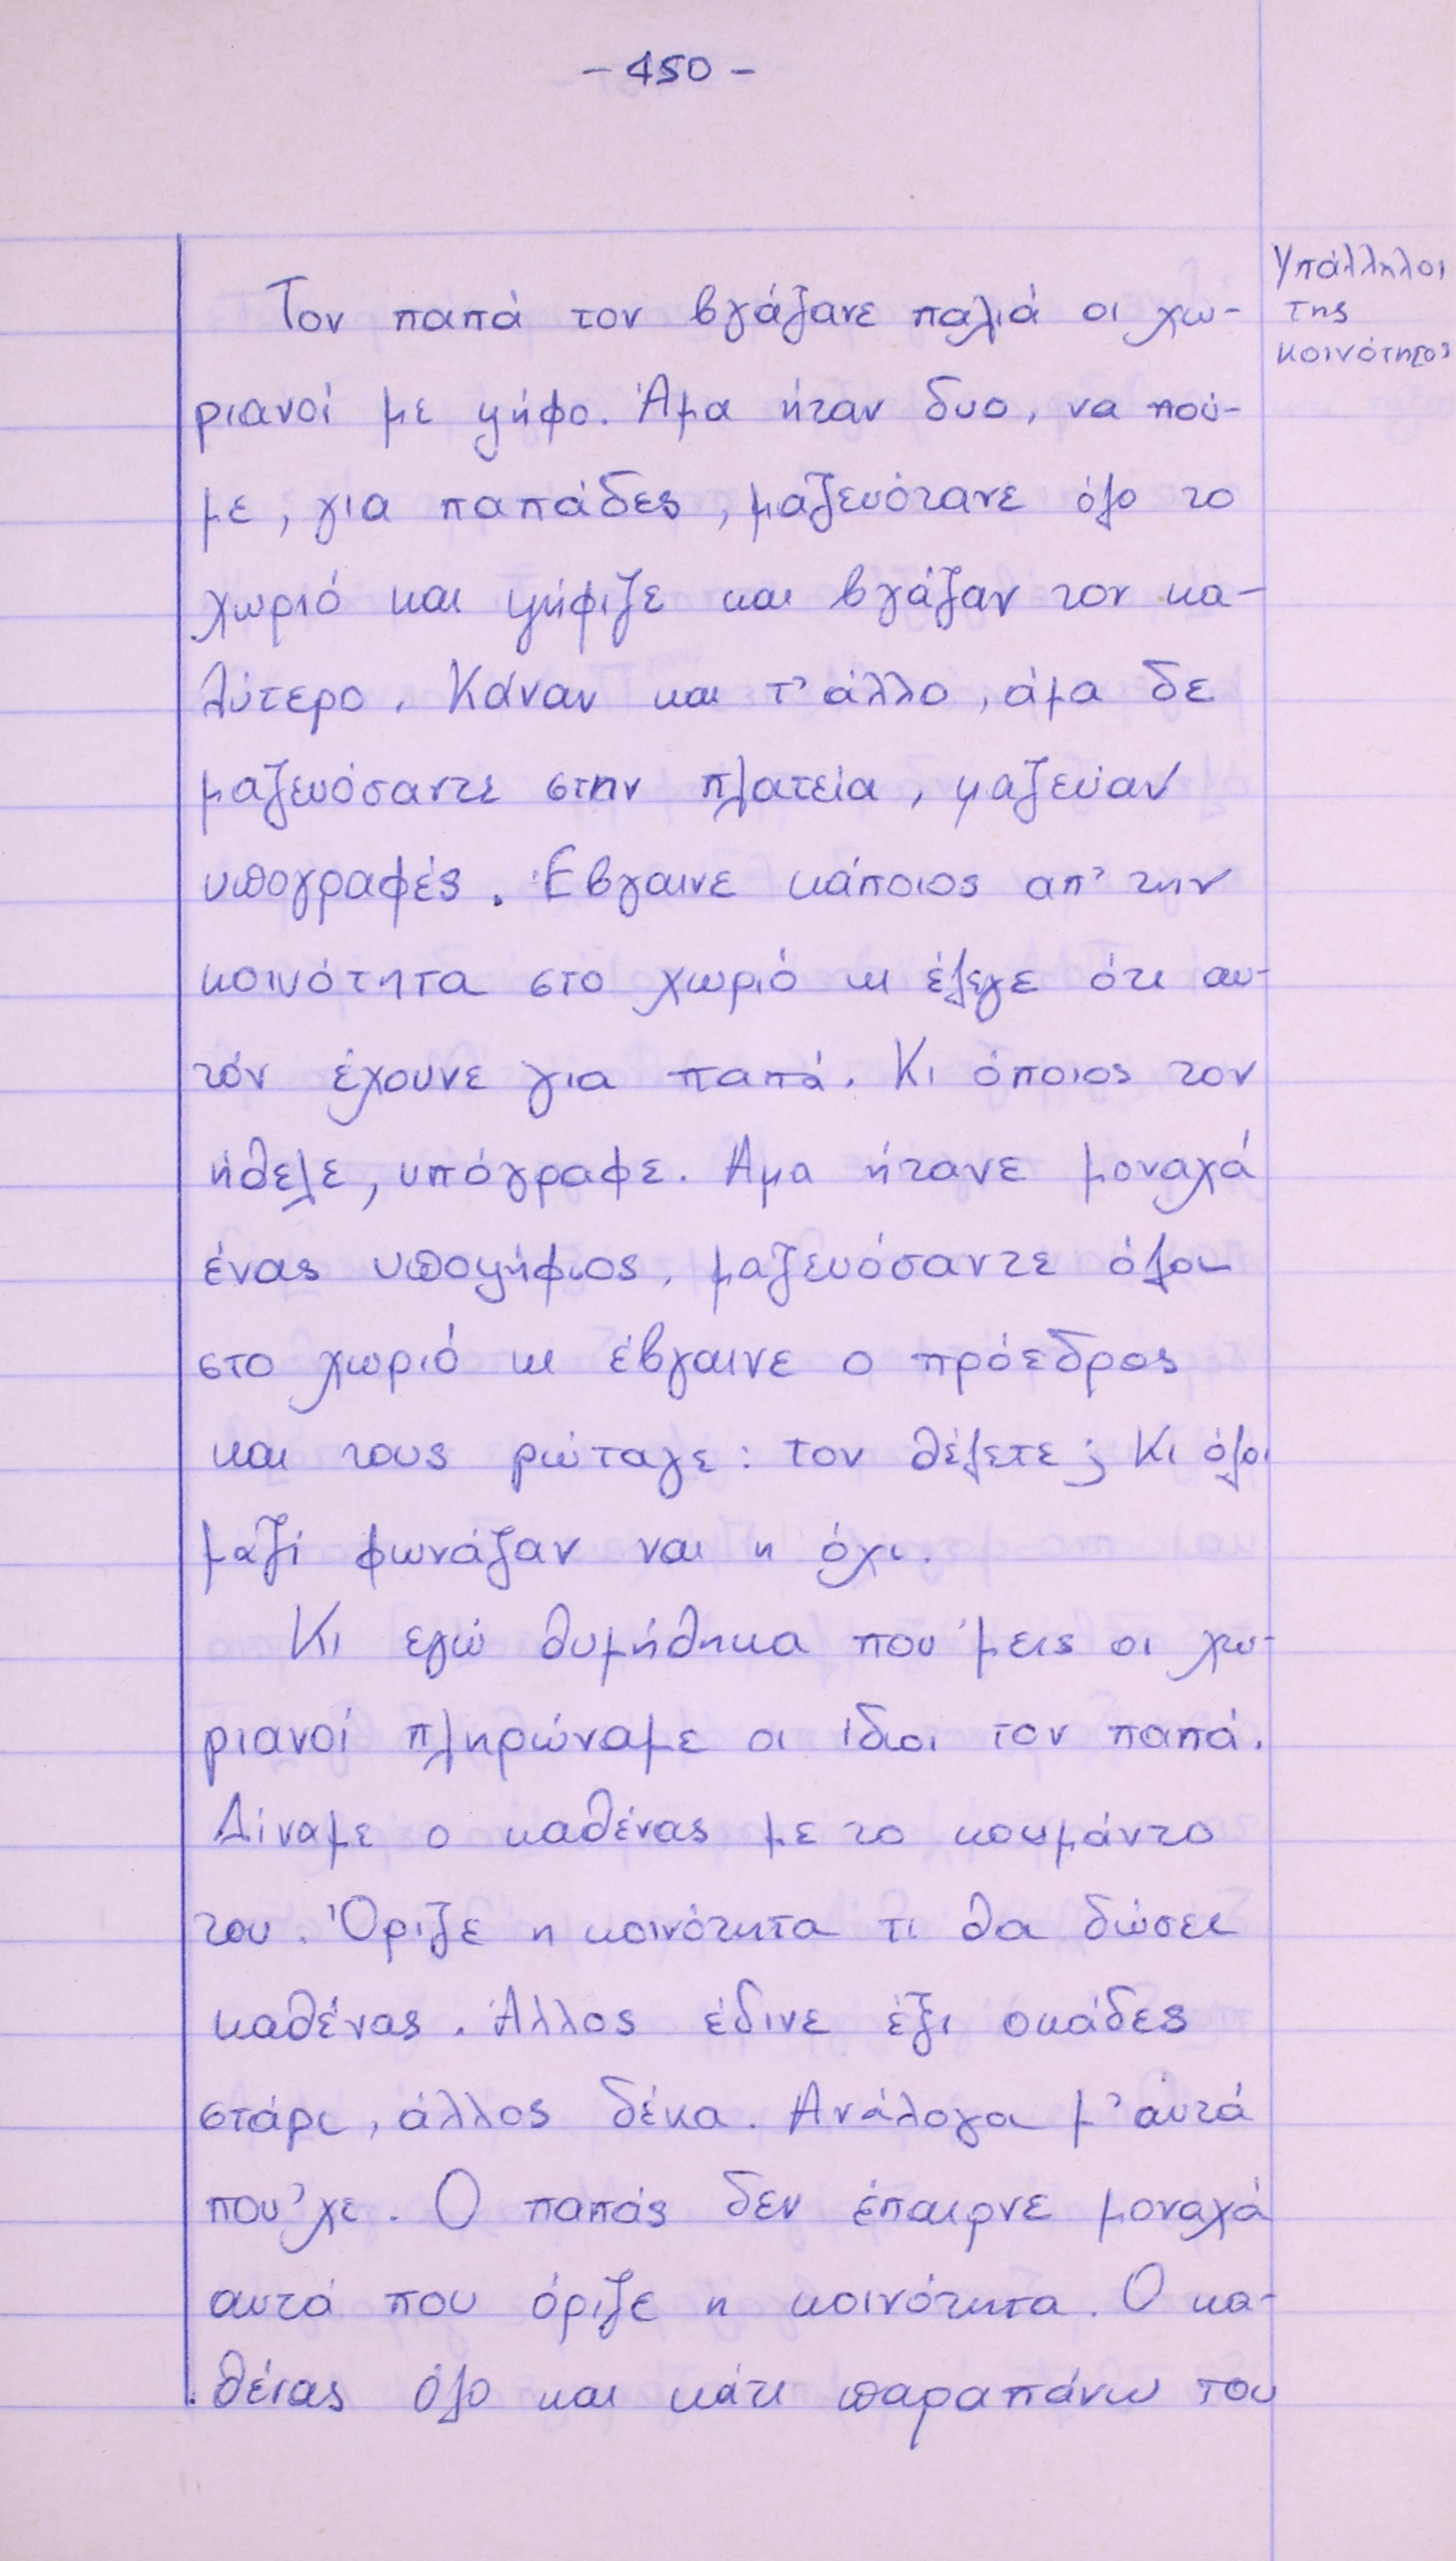 - 450 -
Υπάλληλοι
της
κοινότητος
Τον παπά τον βγάζανε παλιά οι χω-
ριανοί με ψήφο. Άμα ήταν δυο, να πού-
με, για παπάδες, μαζευότανε όλο το
χωριό και ψήφιζε και βγάζαν τον κα-
λύτερο. Κάναν και τ' άλλο, άμα δε
μαζευόσαντε στην πλατεία, μαζεύαν
υπογραφές. Έβγαινε κάποιος απ' την
κοινότητα στο χωριό κι έλεγε ότι αυ-
τόν έχουνε για παπά. Κι όποιος τον
ήθελε, υπόγραφε. Αμα ήτανε μοναχά
ένας υποψήφιος, μαζευόσαντε όλοι
στο χωριό κι έβγαινε ο πρόεδρος
και τους ρώταγε: τον θέλετε; Κι όλοι
μαζί φωνάζαν ναι η όχι.
Κι εγώ θυμήθηκα που 'μεις οι χω-
ριανοί πληρώναμε οι ίδιοι τον παπά.
Δίναμε ο καθένας με το κουμάντο
του. Όριζε η κοινότητα τι θα δώσει
καθένας. Άλλος έδινε έξι οκάδες
στάρι, άλλος δέκα. Ανάλογα μ' αυτά
που 'χε. Ο παπάς δεν έπαιρνε μοναχά
αυτά που όριζε η κοινότητα. Ο κα-
θένας όλο και κάτι παραπάνω του